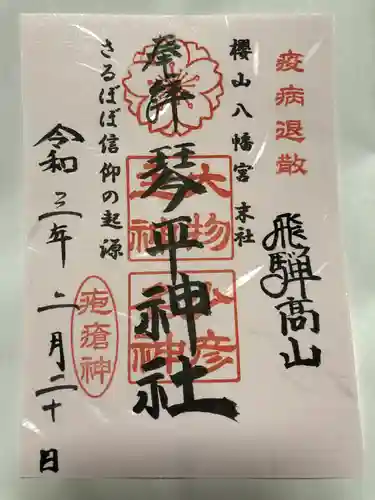 疫病退散
飛騨高山
櫻山八幡宮 末社
奉拝
琴平神社
大物主神
少彦神
さるぼぼ信仰の起源
疱瘡神
令和三年二月二十日